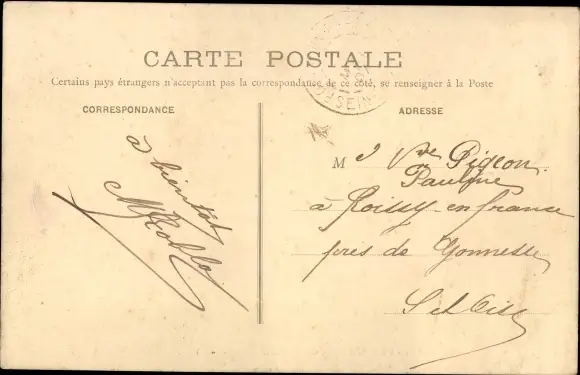 CARTE POSTALE
Certains pays étrangers n'acceptant pas la correspondance de ce côté, se renseigner à la Poste
CORRESPONDANCE
à bientôt
ADRESSE
M Vve Pigeon
à Roissy-en-france
près de Gonnesse
S et Oise
SEINE